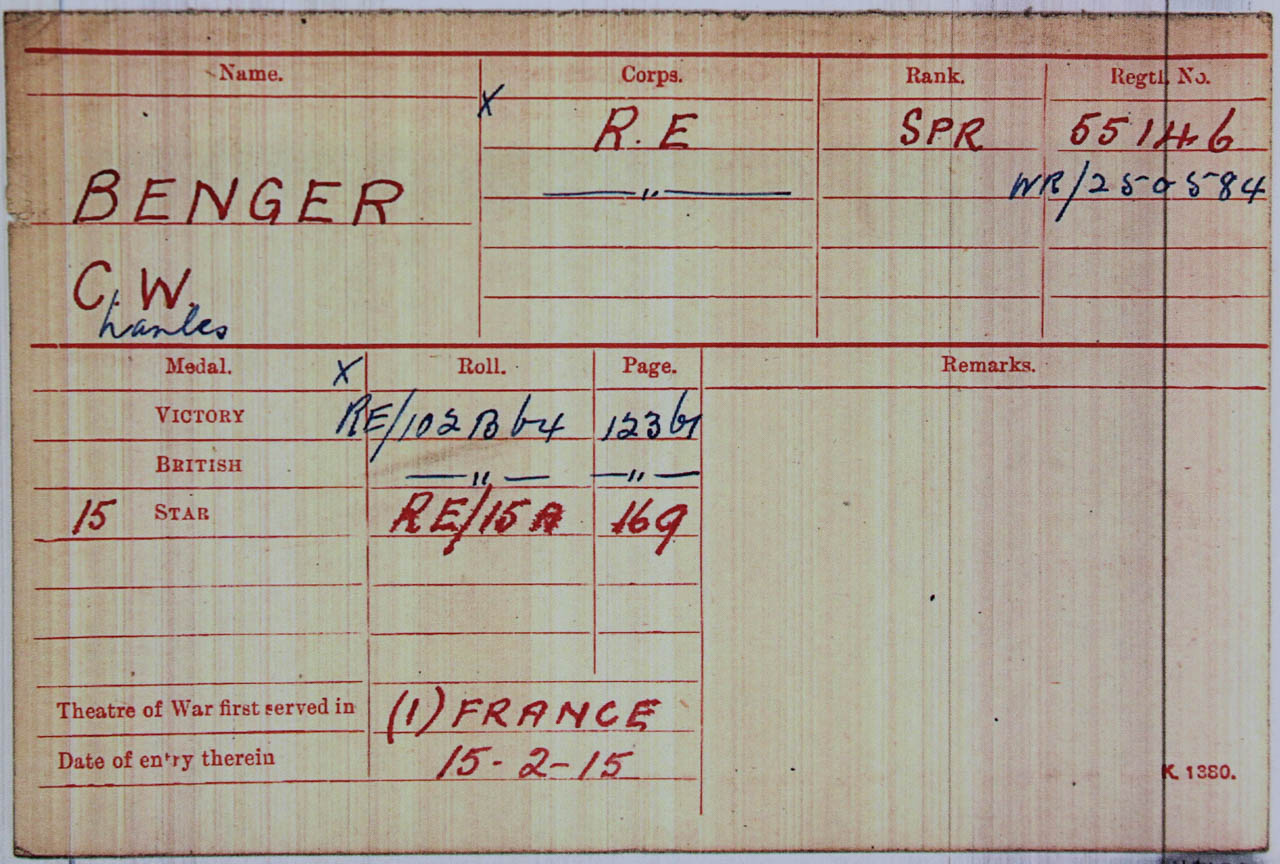 Name. Corps. Rank. Regtl. No.
X R.E SPR 55146
BENGER —"— WR/250584
C. W.
harles
Medal. X Roll. Page.
VICTORY RE/102 B64 12361
BRITISH —"— —"—
15 STAR RE/15A 169
Remarks.
Theatre of War first served in (1) FRANCE
Date of entry therein 15-2-15
K. 1380.